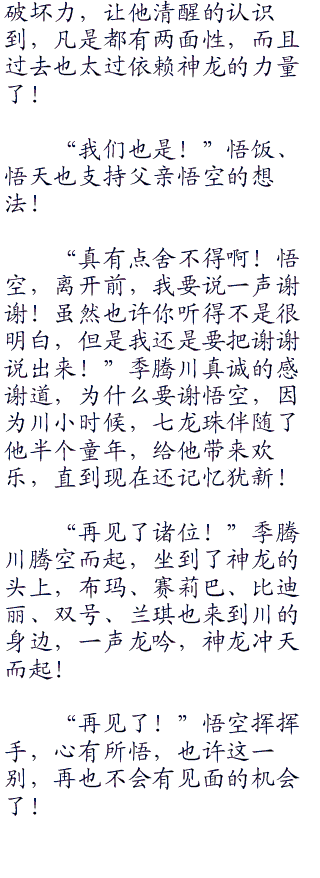 破坏力，让他清醒的认识
到，凡是都有两面性，而且
过去也太过依赖神龙的力量
了！
“我们也是！”悟饭、
悟天也支持父亲悟空的想
法！
“真有点舍不得啊！悟
空，离开前，我要说一声谢
谢！虽然也许你听得不是很
明白，但是我还是要把谢谢
说出来！”季腾川真诚的感
谢道，为什么要谢悟空，因
为川小时候，七龙珠伴随了
他半个童年，给他带来欢
乐，直到现在还记忆犹新！
“再见了诸位！”季腾
川腾空而起，坐到了神龙的
头上，布玛、赛莉巴、比迪
丽、双号、兰琪也来到川的
身边，一声龙吟，神龙冲天
而起！
“再见了！”悟空挥挥
手，心有所悟，也许这一
别，再也不会有见面的机会
了！